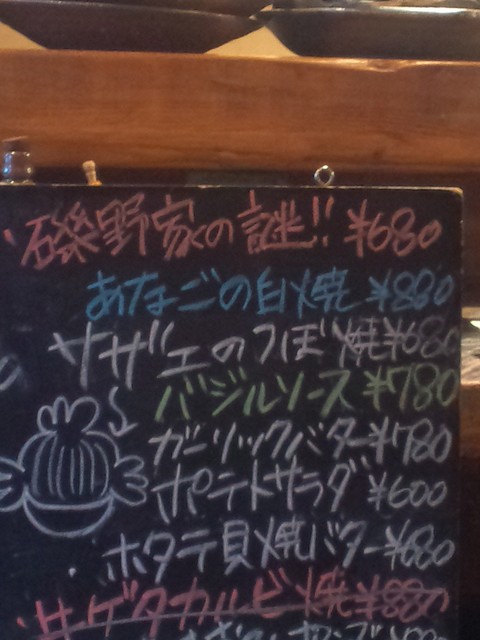 磯野家の謎!! ¥680
あなごの白焼 ¥880
サザエのつぼ焼¥680
バジルソース ¥780
ガーリックバター¥780
ポテトサラダ ¥600
ホタテ貝焼バター¥680
ゲタカルビ焼¥880